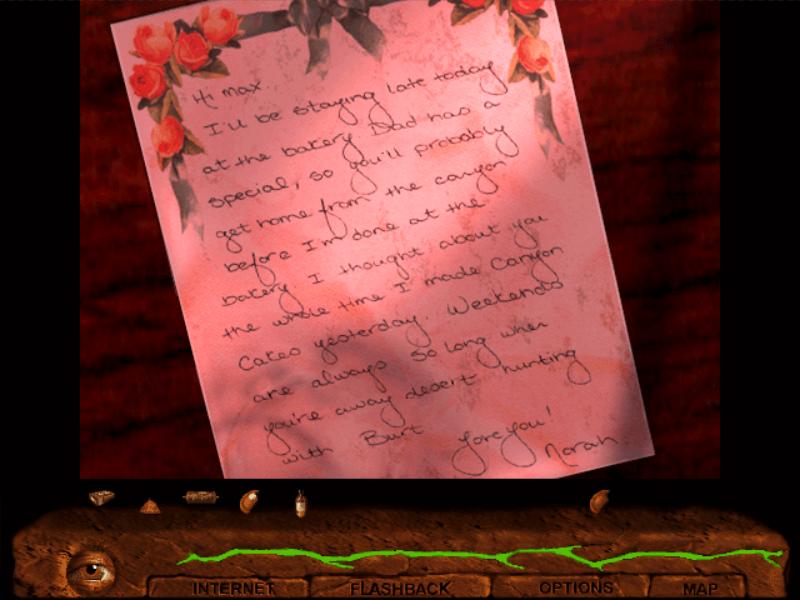 Hi Max,
I'll be staying late today
at the bakery. Dad has a
special, so you'll probably
get home from the canyon
before I'm done at the
bakery I thought about you
the whole time I made Canyon
Cakes yesterday. Weekends
are always so long when
you're away desert hunting
with Burt Love you!
Norah
INTERNET
FLASHBACK
OPTIONS
MAP